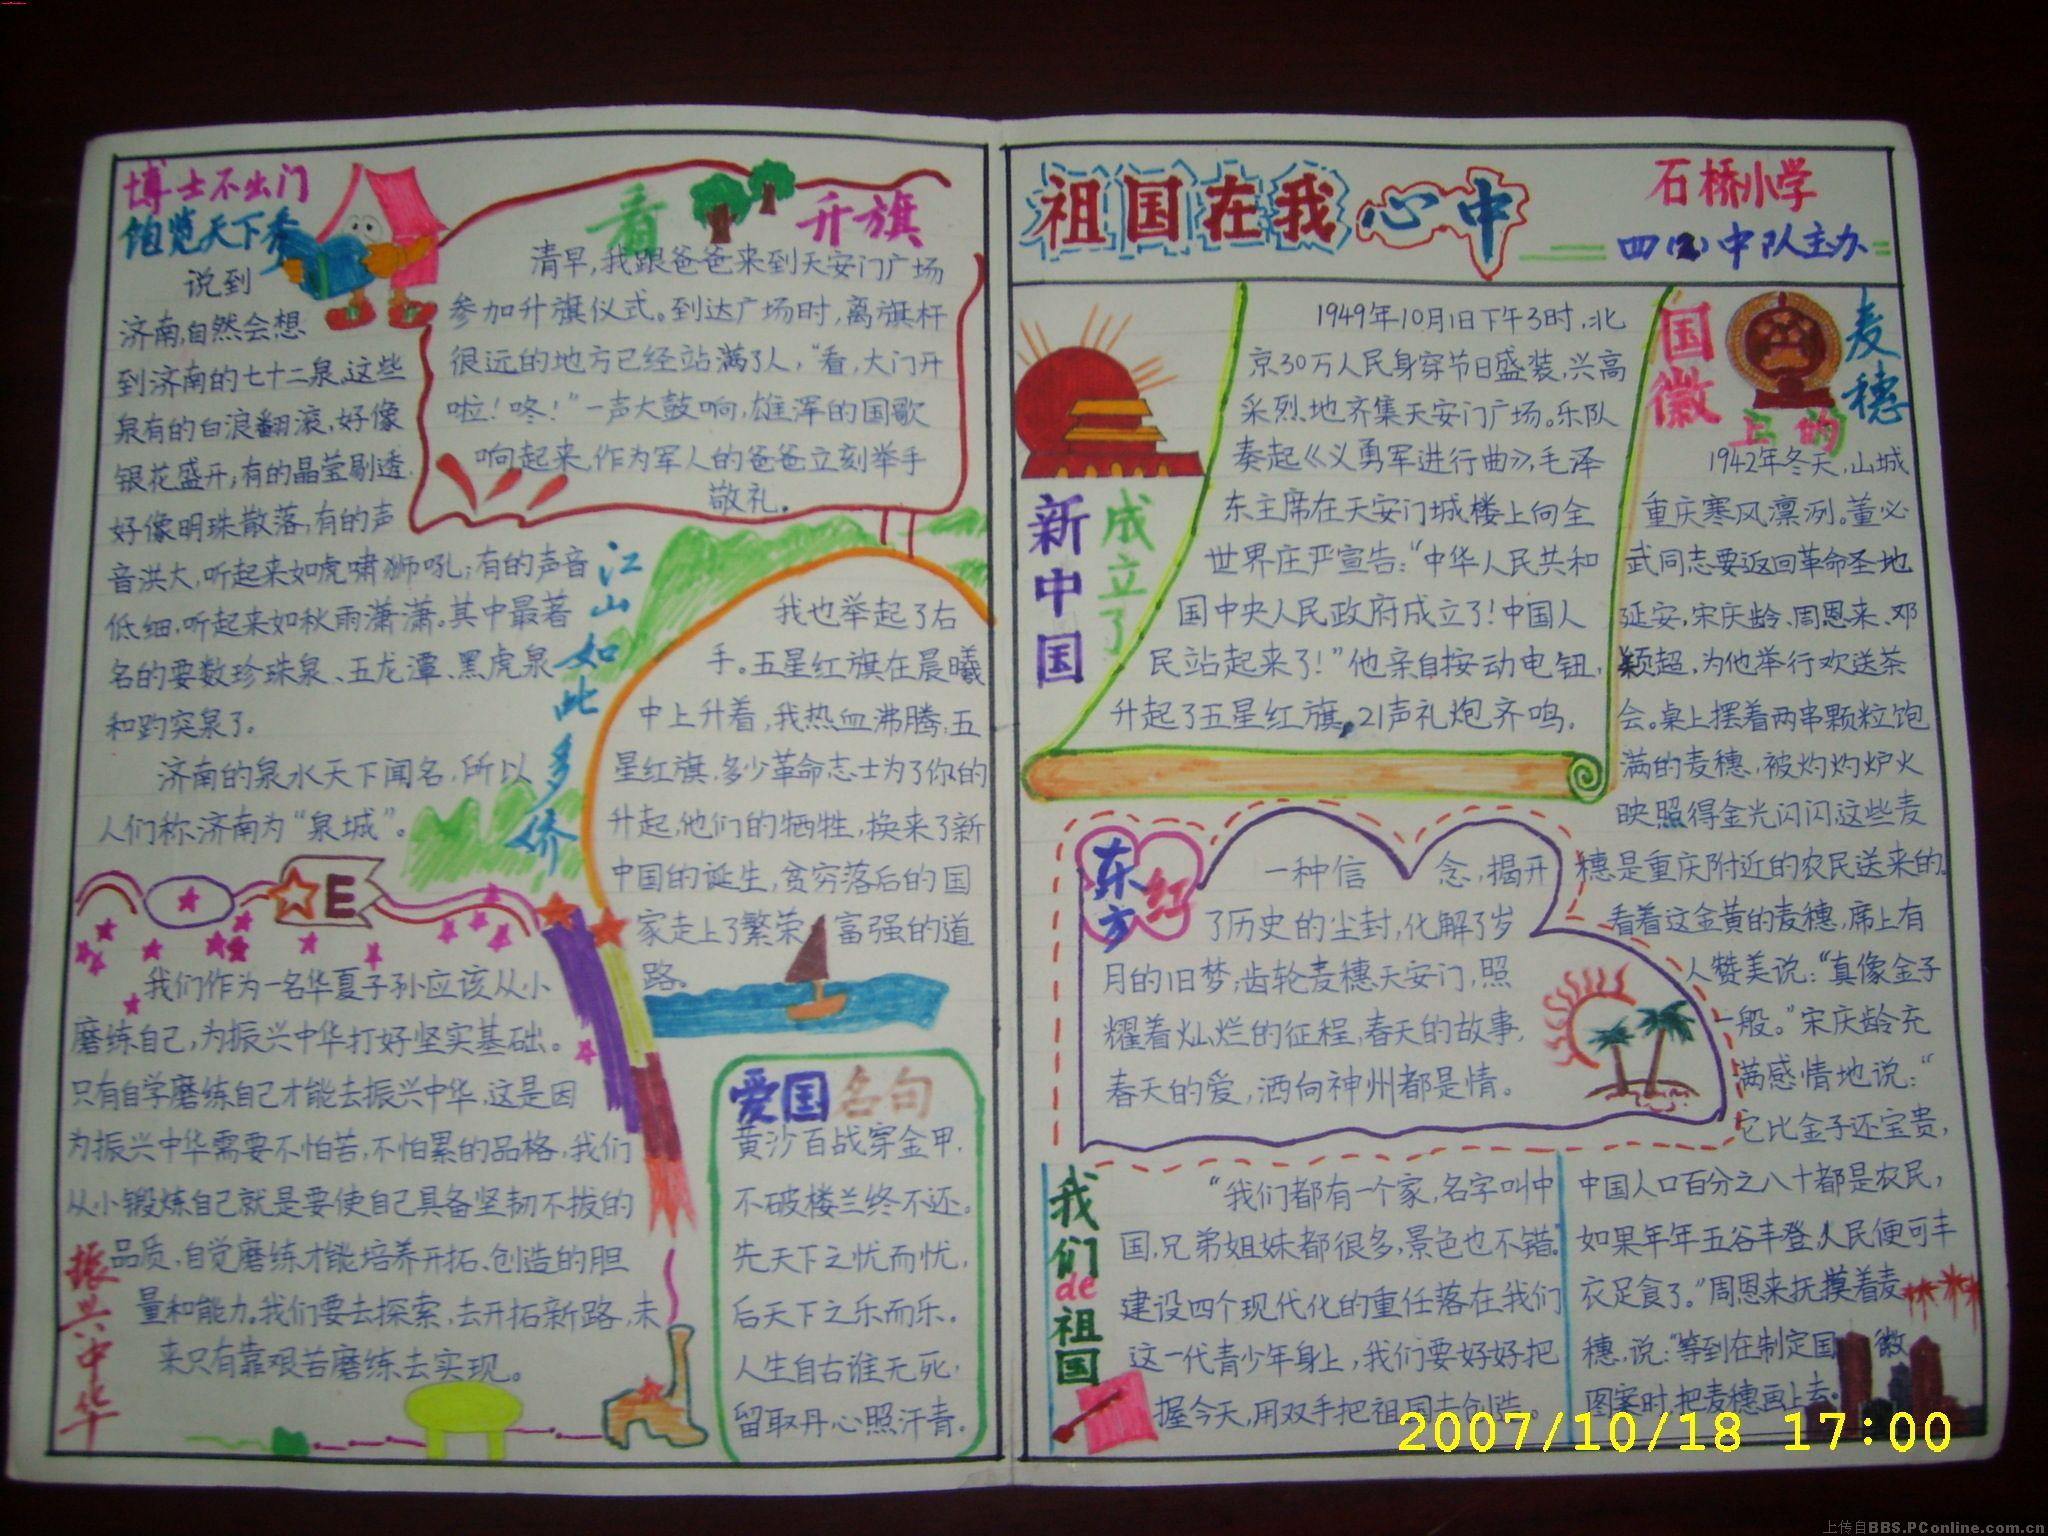 博士不出门
饱览天下秀
说到
济南,自然会想
到济南的七十二泉,这些
泉有的白浪翻滚,好像
银花盛开;有的晶莹剔透,
好像明珠散落,有的声
音洪大,听起来如虎啸狮吼;有的声音
低细,听起来如秋雨潇潇。其中最著
名的要数珍珠泉、五龙潭、黑虎泉
和趵突泉了。
济南的泉水天下闻名,所以
人们称济南为“泉城”。
看升旗
清早,我跟爸爸来到天安门广场
参加升旗仪式。到达广场时,离旗杆
很远的地方已经站满了人,“看,大门开
啦!咚!”一声大鼓响,雄浑的国歌
响起来,作为军人的爸爸立刻举手
敬礼。
江山如此多娇
我也举起了右
手。五星红旗在晨曦
中上升着,我热血沸腾,五
星红旗,多少革命志士为了你的
升起,他们的牺牲,换来了新
中国的诞生,贫穷落后的国
家走上了繁荣富强的道
路。
E
我们作为一名华夏子孙应该从小
磨练自己,为振兴中华打好坚实基础。
只有自学磨练自己才能去振兴中华,这是因
为振兴中华需要不怕苦,不怕累的品格,我们
从小锻炼自己就是要使自己具备坚韧不拔的
品质,自觉磨练才能培养开拓、创造的胆
量和能力。我们要去探索,去开拓新路,未
来只有靠艰苦磨练去实现。
振兴中华
爱国名句
黄沙百战穿金甲,
不破楼兰终不还。
先天下之忧而忧,
后天下之乐而乐。
人生自古谁无死,
留取丹心照汗青。
祖国在我心中
石桥小学
中队主办
新中国
成立了
1949年10月1日下午3时,北
京30万人民身穿节日盛装,兴高
采烈地齐集天安门广场。乐队
奏起《义勇军进行曲》,毛泽
东主席在天安门城楼上向全
世界庄严宣告:“中华人民共和
国中央人民政府成立了!中国人
民站起来了!”他亲自按动电钮,
升起了五星红旗,21声礼炮齐鸣.
国徽上的麦穗
1942年冬天,山城
重庆寒风凛冽。董必
武同志要返回革命圣地
延安,宋庆龄、周恩来、邓
颖超,为他举行欢送茶
会。桌上摆着两串颗粒饱
满的麦穗,被灼灼炉火
映照得金光闪闪这些麦
穗是重庆附近的农民送来的。
看着这金黄的麦穗,席上有
人赞美说:“真像金子
一般。”宋庆龄充
满感情地说:“
它比金子还宝贵,
中国人口百分之八十都是农民,
如果年年五谷丰登,人民便可丰
衣足食了。”周恩来抚摸着麦
穗,说:“等到在制定国徽
图案时,把麦穗画上去。
东方红
一种信念,揭开
了历史的尘封,化解了岁
月的旧梦;齿轮麦穗天安门,照
耀着灿烂的征程,春天的故事,
春天的爱,洒向神州都是情。
我们de祖国
“我们都有一个家,名字叫中
国,兄弟姐妹都很多,景色也不错”
建设四个现代化的重任落在我们
这一代青少年身上,我们要好好把
握今天,用双手把祖国去创造。
2007/10/18 17:00
上传自BBS.PConline.com.cn